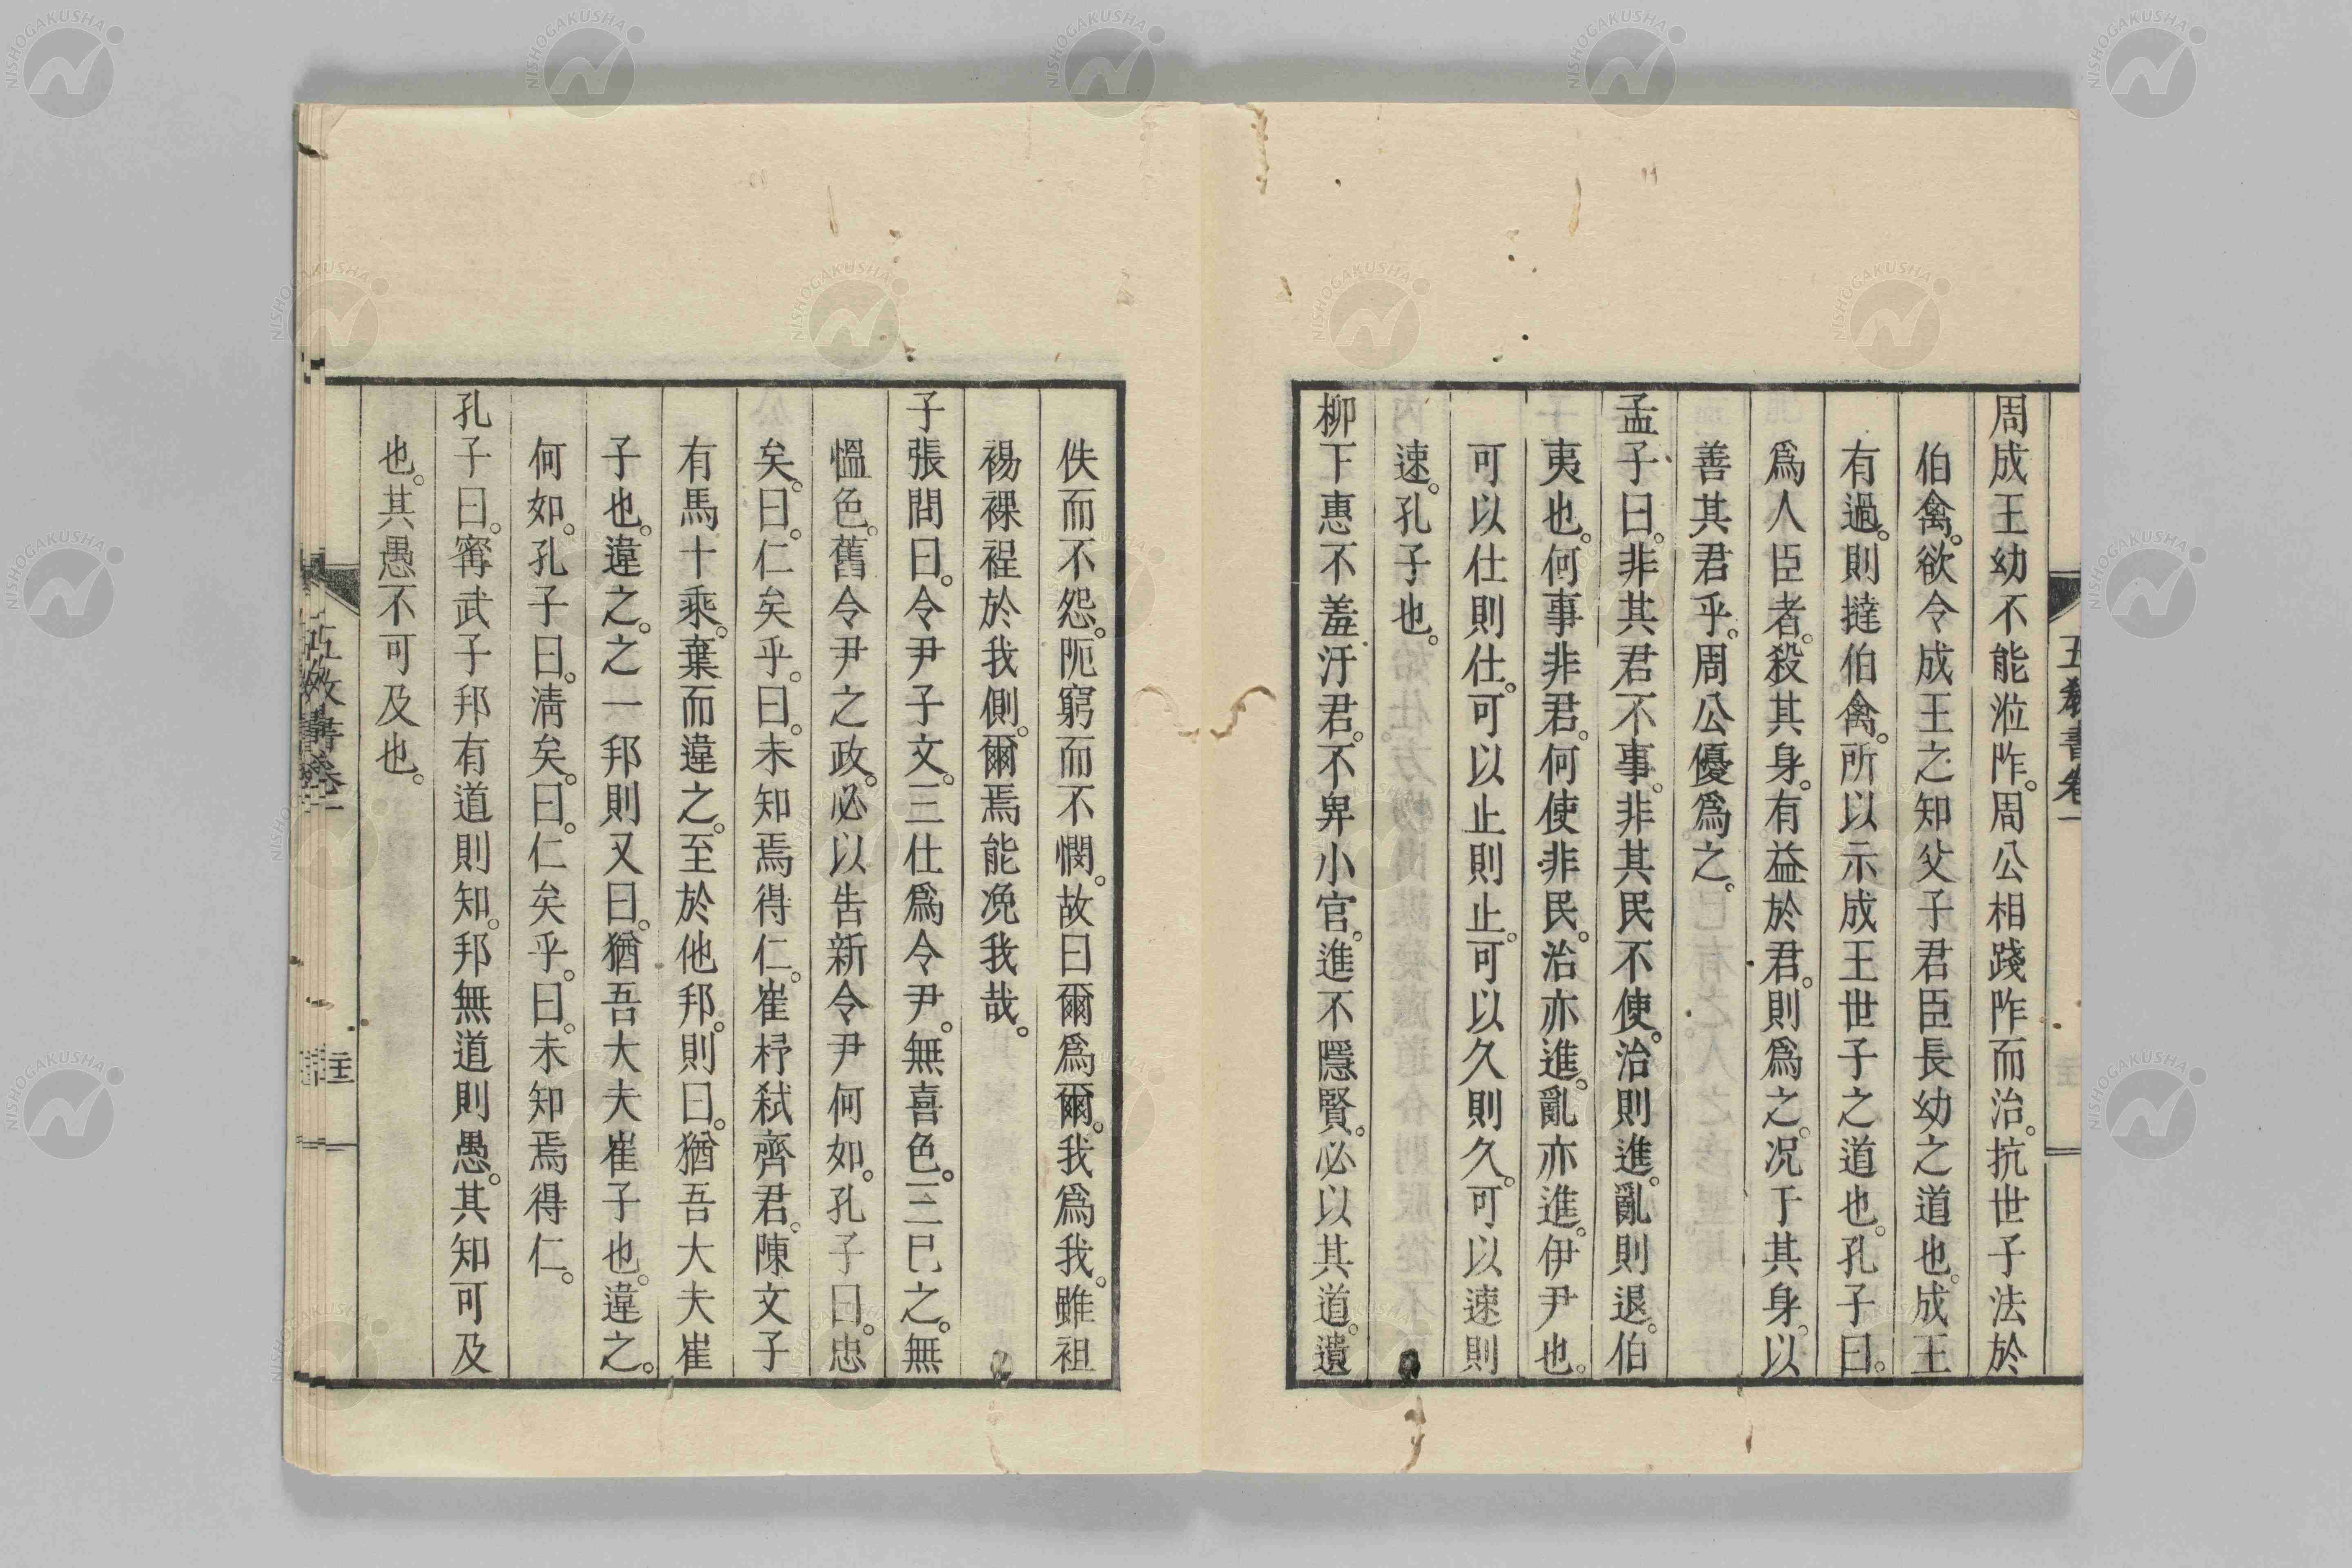 五教書卷一
周成王幼不能涖阼。周公相踐阼而治。抗世子法於
伯禽。欲令成王之知父子君臣長幼之道也。成王
有過。則撻伯禽。所以示成王世子之道也。孔子曰。
爲人臣者。殺其身。有益於君。則爲之。况于其身。以
善其君乎。周公優爲之。
孟子曰。非其君不事。非其民不使。治則進。亂則退。伯
夷也。何事非君。何使非民。治亦進。亂亦進。伊尹也。
可以仕則仕。可以止則止。可以久則久。可以速則
速。孔子也。
柳下惠不羞汙君。不卑小官。進不隱賢。必以其道。遺
佚而不怨。阨窮而不憫。故曰爾爲爾。我爲我。雖袒
裼裸裎於我側。爾焉能浼我哉。
子張問曰。令尹子文。三仕爲令尹。無喜色。三已之。無
慍色。舊令尹之政。必以告新令尹何如。孔子曰。忠
矣。曰。仁矣乎。曰。未知焉得仁。崔杼弑齊君。陳文子
有馬十乘。棄而違之。至於他邦。則曰。猶吾大夫崔
子也。違之。之一邦則又曰。猶吾大夫崔子也。違之。
何如。孔子曰。淸矣。曰。仁矣乎。曰。未知焉得仁。
孔子曰。甯武子邦有道則知。邦無道則愚。其知可及
也。其愚不可及也。
五教書卷一
NISHOGAKUSHA